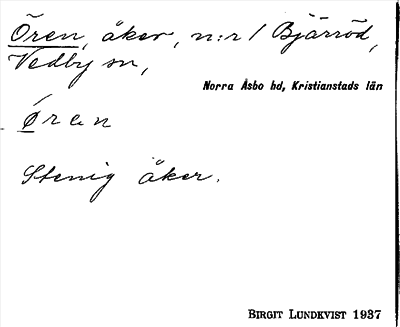 Ören, åker, n:r 1 Bjärröd,
Vedby sn,
Norra Åsbo hd, Kristianstads län
Øren
Stenig åker.
BIRGIT LUNDKVIST 1937